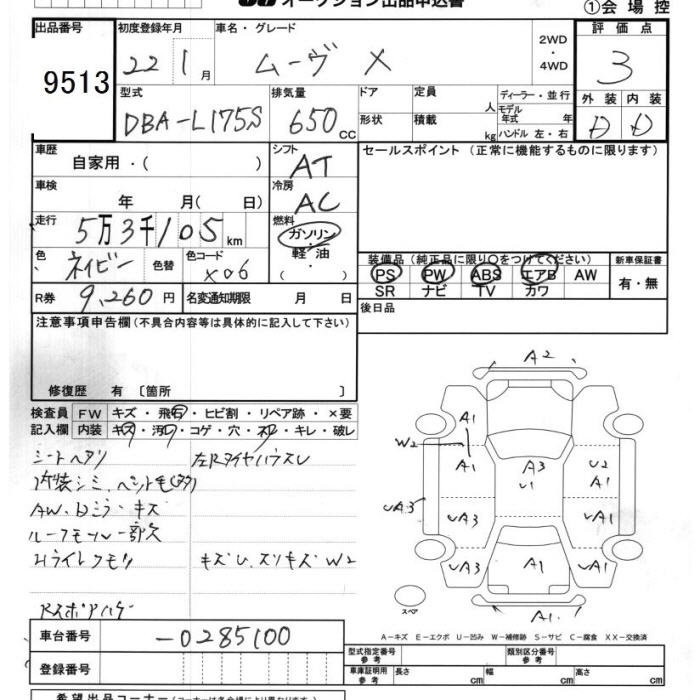 オークション出品申込書
①会場控
出品番号 9513
初度登録年月 22 1月
車名・グレード ムーヴ X
2WD・4WD
評価点 3
外装 D 内装 D
型式 DBA-L175S
排気量 650 CC
ドア 形状
定員 人 積載 kg
ディーラー・並行
モデル年式 年
ハンドル 左・右
車歴 自家用・( )
シフト AT
セールスポイント (正常に機能するものに限ります)
車検 年 月( 日)
冷房 AC
走行 5万3千105 km
燃料 ガソリン・軽油・( )
色 ネイビー 色替 色コード X06
装備品(純正品に限り○をつけてください)
PS PW ABS エアB AW
SR ナビ TV カワ
新車保証書 有・無
R券 9,260円 名変通知期限 月 日
後日品
注意事項申告欄(不具合内容等は具体的に記入して下さい)
修復歴 有 〔箇所 〕
検査員記入欄
FW キズ・飛石・ヒビ割・リペア跡・×要
内装 キズ・汚レ・コゲ・穴・スレ・キレ・破レ
シートヘタリ
左Rタイヤハウスし
内装シミ、
AW、Dミラーキズ
ルーフモール一部欠
Hライトクモリ
キズU、スリキズW2
A2
A1
W2
A1
A3
U1
U2
A1
UA3
UA3
UA1
UA3
A1
UA1
A1
スペア
A-キズ E-エクボ U-凹み W-補修跡 S-サビ C-腐食 XX-交換済
車台番号 -0285100
型式指定番号 参考
類別区分番号 参考
登録番号
車庫証明用 参考 長さ cm 幅 cm 高さ cm
希望出品コーナー(コーナーは各会場により異なります)